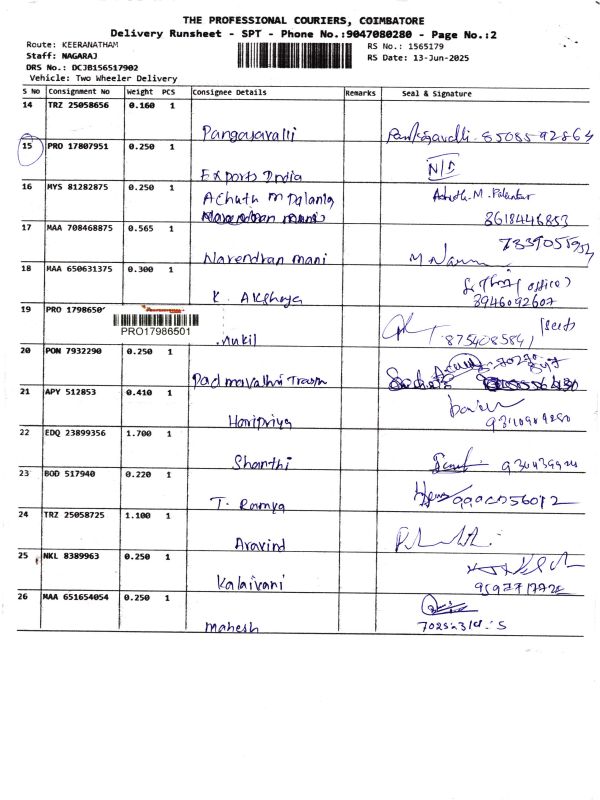 THE PROFESSIONAL COURIERS, COIMBATORE
Delivery Runsheet - SPT - Phone No.:9047080280 - Page No.:2
Route: KEERANATHAM
RS No.: 1565179
Staff: NAGARAJ
RS Date: 13-Jun-2025
DRS No.: DCJB156517902
Vehicle: Two Wheeler Delivery
S No Consignment No Weight PCS Consignee Details Remarks Seal & Signature
14 TRZ 25058656 0.160 1
Pangayavalli 8508592864
15 PRO 17807951 0.250 1
Exports India N/S
16 MYS 81282875 0.250 1
Achuth M Palanig
Achuth.M.
Narendran mani
8618446853
17 MAA 708468875 0.565 1
Narendran mani
18 MAA 650631375 0.300 1
(office)
K. Akshaya 3946092607
19 PRO 1798650
PRO17986501
8754085841
20 PON 7932290 0.250 1
Padmavathri
21 APY 512853 0.410 1
Haripriya
22 EDQ 23899356 1.700 1
Shanthi
23 BOD 517940 0.220 1
T. Ramya
24 TRZ 25058725 1.100 1
Aravind
25 NKL 8389963 0.250 1
Kalaivani
26 MAA 651654054 0.250 1
Mahesh